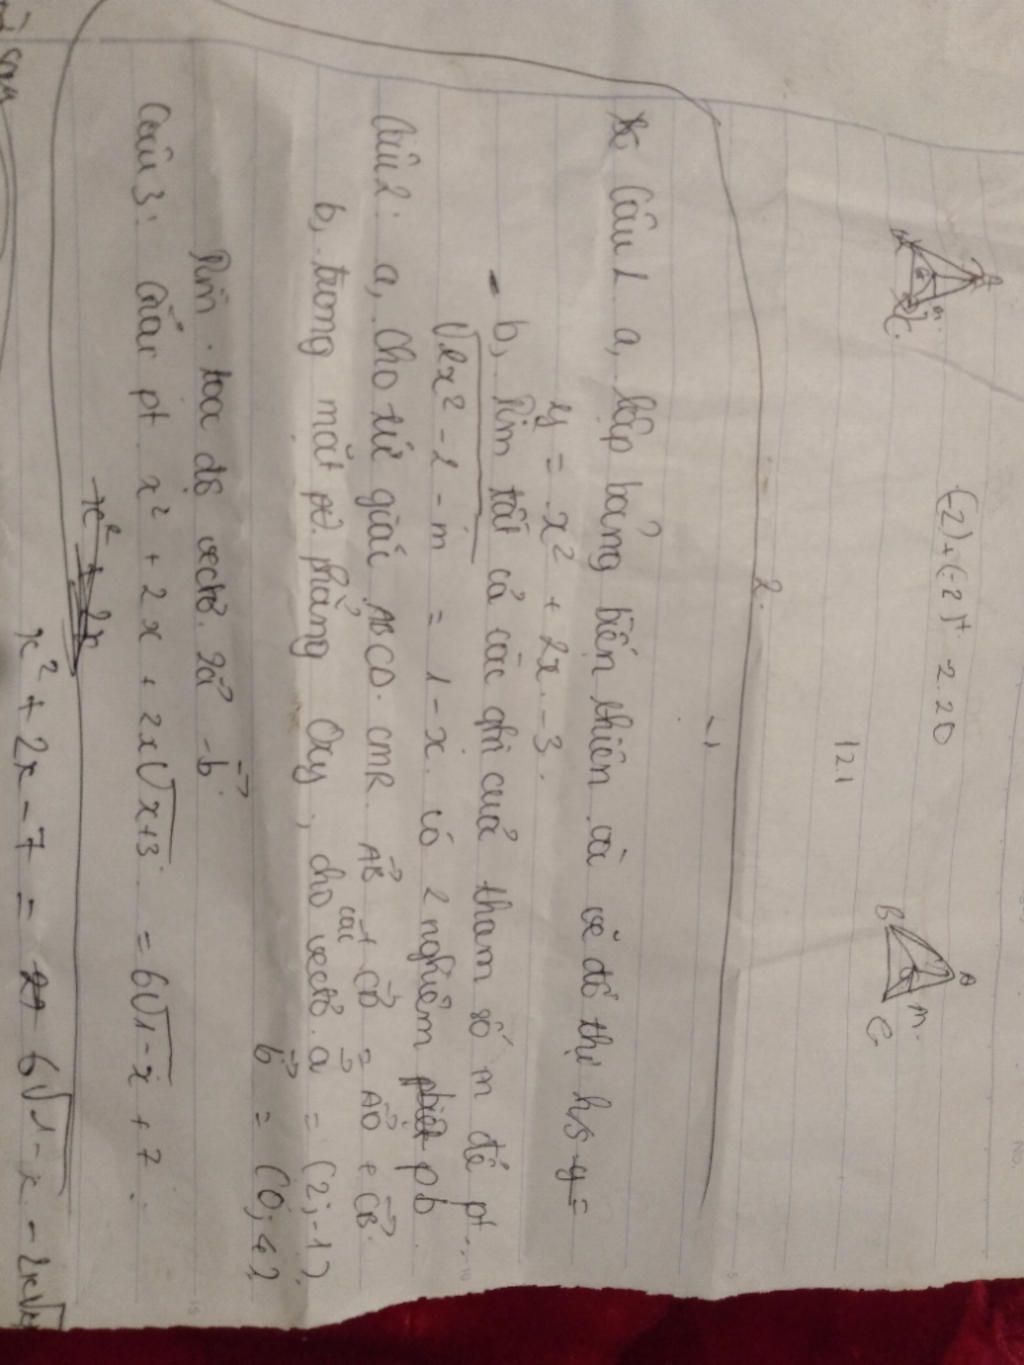 (-2)+(-2)+ 2.20
12.1
A
B
C
A
M
B
C
2.
Câu 1 a, lập bảng biến thiên và vẽ đồ thị hs y =
y = x² + 2x - 3.
b, Tìm tất cả các gtri của tham số m để pt
√2x² - 2 - m = 1 - x. có 2 nghiệm pb
Câu 2: a, Cho tứ giác ABCD. CMR. AB + CD = AD + CB.
b, trong mặt phẳng Oxy, cho các vectơ. a = (2; -1),
b = (0; 4)
Tìm toạ độ vectơ. 2a - b
Câu 3: Giải pt x² + 2x + 2x√x+3 = 6√1-x + 7.
x² + 2x
x² + 2x - 7 = 6√1-x - 2x√x